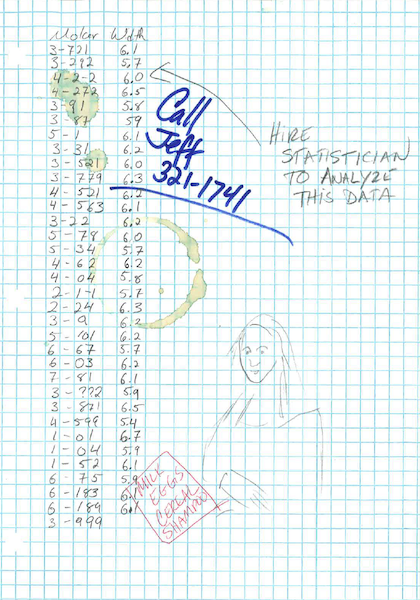 Molar Width
3-721 6.1
3-292 5.7
4-2-2 6.0
4-272 6.5
3-91 5.8
3-87 59
5-1 6.1
3-31 6.2
3-521 6.0
3-779 6.3
4-521 6.2
4-563 6.1
3-22 6.2
5-78 6.0
5-34 5.7
4-62 6.2
4-04 5.8
2-1-1 5.7
2-24 6.3
3-9 6.2
6.2
6-67 5.7
6-03 6.2
7-81 6.1
3-??? 5.9
6.5
4-599 5.4
1-01 6.7
1-04 5.9
1-52 6.1
6-75 5.9
6-183 6.1
6-189 6.1
3-999
Call
Jeff
321-1741
HIRE
STATISTICIAN
TO ANALYZE
THIS DATA
MILK
EGGS
CEREAL
SHAMPOO